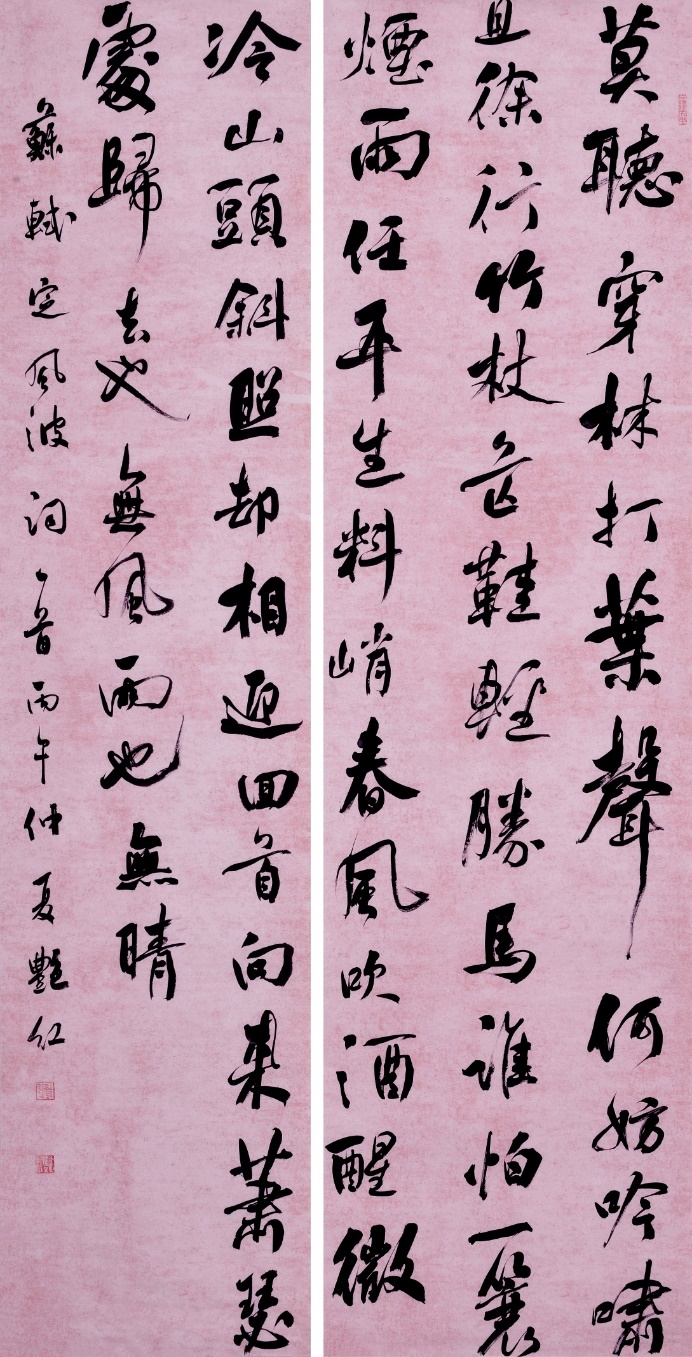 莫聽穿林打葉聲何妨吟嘯
且徐行竹杖芒鞋輕勝馬誰怕一蓑
煙雨任平生料峭春風吹酒醒微
冷山頭斜照却相迎回首向来蕭瑟
處歸去也無風雨也無晴
蘇軾定風波詞一首丙午仲夏艷红